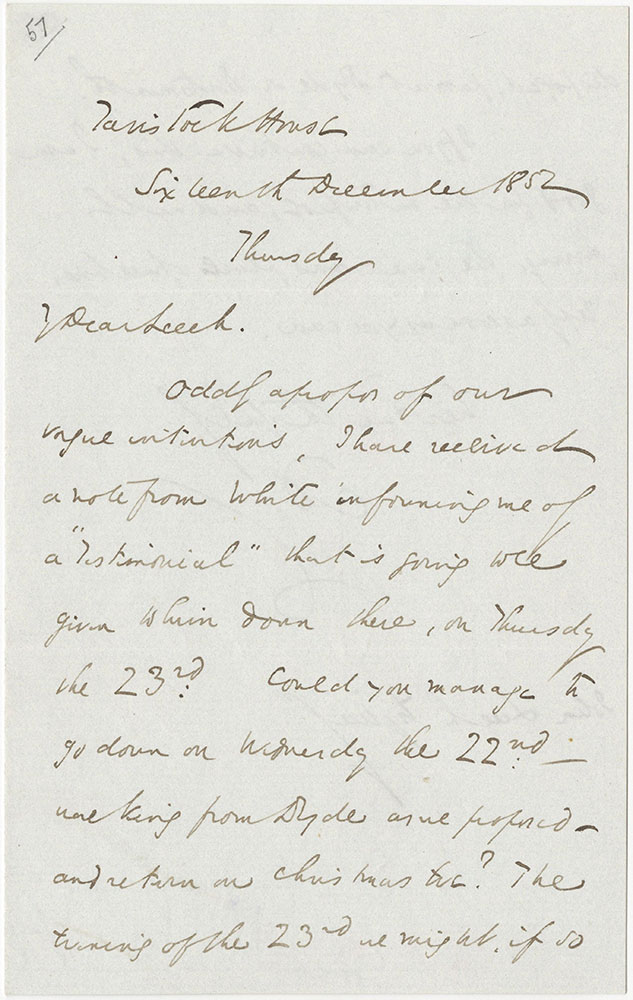 57/
Tavistock House
Sixteenth December 1852
Thursday
My Dear Leech.
Oddly apropos of our
vague intentions, I have received
a note from White informing me of
a "Testimonial" that is going to be
given to him down there, on Thursday
the 23rd. Could you manage to
go down on Wednesday the 22nd —
walking from Ryde as we proposed —
and return on Christmas Eve? The
evening of the 23rd we might, if so